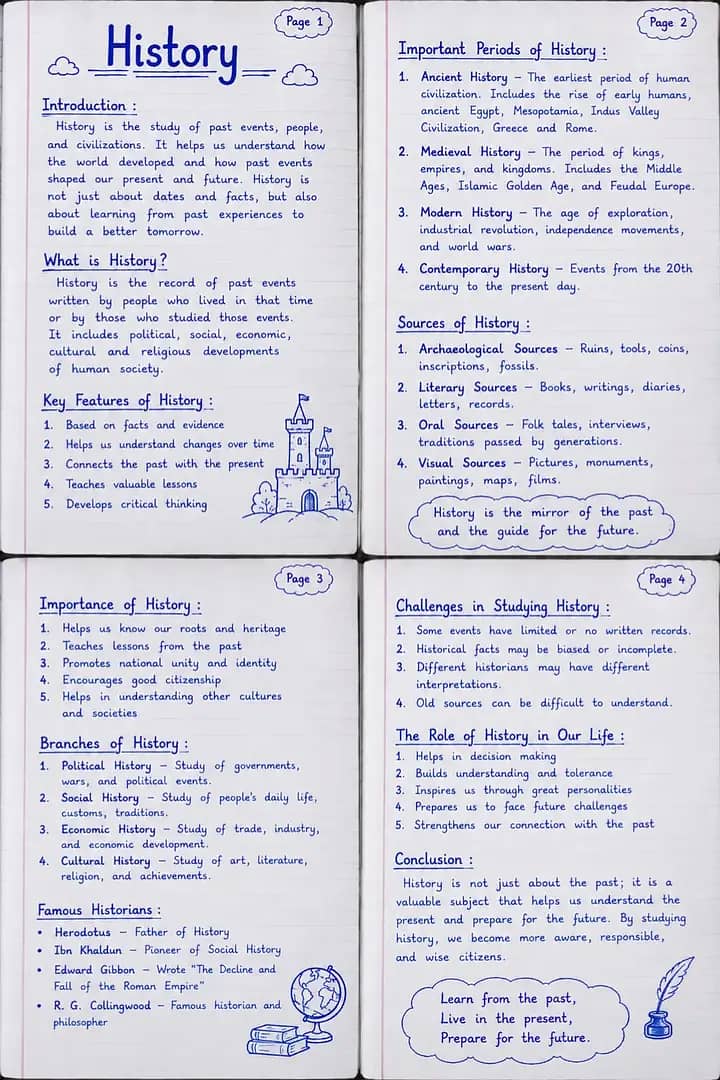 Page 1
History
Introduction :
History is the study of past events, people,
and civilizations. It helps us understand how
the world developed and how past events
shaped our present and future. History is
not just about dates and facts, but also
about learning from past experiences to
build a better tomorrow.
What is History?
History is the record of past events
written by people who lived in that time
or by those who studied those events.
It includes political, social, economic,
cultural and religious developments
of human society.
Key Features of History :
1. Based on facts and evidence
2. Helps us understand changes over time
3. Connects the past with the present
4. Teaches valuable lessons
5. Develops critical thinking
Page 2
Important Periods of History :
1. Ancient History – The earliest period of human
civilization. Includes the rise of early humans,
ancient Egypt, Mesopotamia, Indus Valley
Civilization, Greece and Rome.
2. Medieval History – The period of kings,
empires, and kingdoms. Includes the Middle
Ages, Islamic Golden Age, and Feudal Europe.
3. Modern History – The age of exploration,
industrial revolution, independence movements,
and world wars.
4. Contemporary History – Events from the 20th
century to the present day.
Sources of History :
1. Archaeological Sources – Ruins, tools, coins,
inscriptions, fossils.
2. Literary Sources – Books, writings, diaries,
letters, records.
3. Oral Sources – Folk tales, interviews,
traditions passed by generations.
4. Visual Sources – Pictures, monuments,
paintings, maps, films.
History is the mirror of the past
and the guide for the future.
Page 3
Importance of History :
1. Helps us know our roots and heritage
2. Teaches lessons from the past
3. Promotes national unity and identity
4. Encourages good citizenship
5. Helps in understanding other cultures
and societies
Branches of History :
1. Political History – Study of governments,
wars, and political events.
2. Social History – Study of people's daily life,
customs, traditions.
3. Economic History – Study of trade, industry,
and economic development.
4. Cultural History – Study of art, literature,
religion, and achievements.
Famous Historians :
• Herodotus – Father of History
• Ibn Khaldun – Pioneer of Social History
• Edward Gibbon – Wrote "The Decline and
Fall of the Roman Empire"
• R. G. Collingwood – Famous historian and
philosopher
Page 4
Challenges in Studying History :
1. Some events have limited or no written records.
2. Historical facts may be biased or incomplete.
3. Different historians may have different
interpretations.
4. Old sources can be difficult to understand.
The Role of History in Our Life :
1. Helps in decision making
2. Builds understanding and tolerance
3. Inspires us through great personalities
4. Prepares us to face future challenges
5. Strengthens our connection with the past
Conclusion :
History is not just about the past; it is a
valuable subject that helps us understand the
present and prepare for the future. By studying
history, we become more aware, responsible,
and wise citizens.
Learn from the past,
Live in the present,
Prepare for the future.